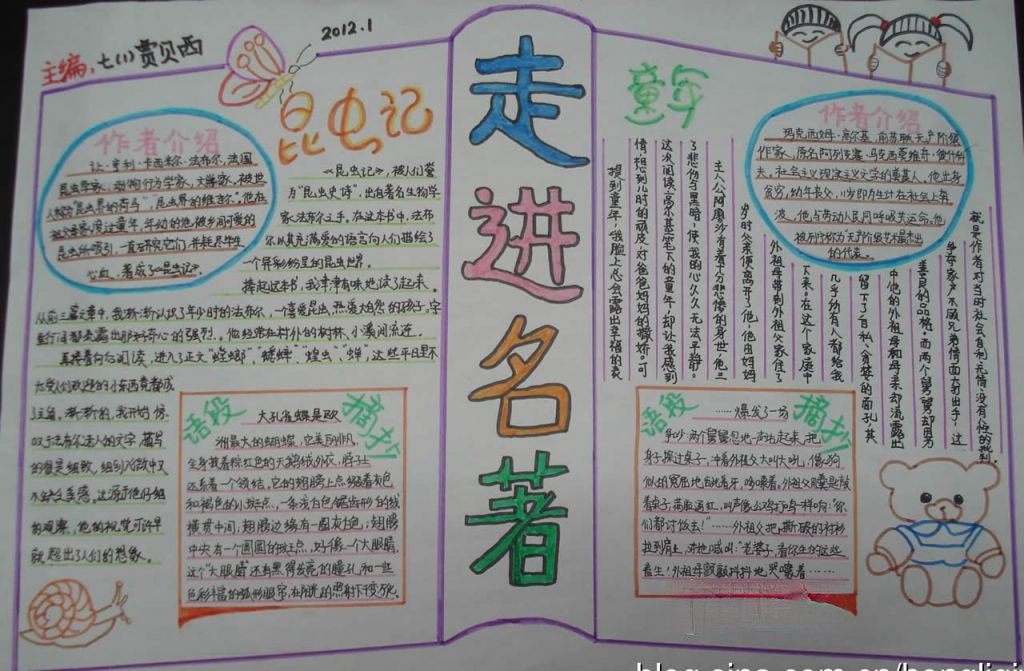 主编：七(1)贾贝西
2012.1
走进名著
昆虫记
作者介绍
让·亨利·卡西米尔·法布尔，法国
昆虫学家，动物行为学家，文学家。被世
人称为"昆虫界的荷马"，昆虫界的维吉尔。他在
昆虫所吸引，一直研究它们，并耗尽毕生
心血，著成了《昆虫记》。
《昆虫记》，被人们誉
为"昆虫史诗"，出自著名生物学
家法布尔之手，在这本书中，法布
尔以其充满爱的语言向人们描绘了
一个异彩纷呈的昆虫世界。
捧起这本书，我津津有味地读了起来。
从前三篇文章中，我渐渐认识了年少时的法布尔，一喜爱昆虫、热爱大自然的孩子。字
里行间都表露出那好奇心的强烈。他经常在村外的树林、小溪间流连。
再接着向后阅读，进入了正文"螳螂""蟋蟀""蝗虫""蝉"，这些平日里不
大受人们欢迎的小东西竟都成
了主角，渐渐的，我开始惊
叹于法布尔法人的文字，描写
的很是细致，细到入微中又
不缺少美感，这源于他仔细
的观察，他的视觉可许早
就超出了人们的想象。
语段摘抄
大孔雀蝶是欧
洲最大的蝴蝶，它美丽非凡，
全身披着棕红色的天鹅绒外衣，脖子上
还系着一个领结，它的翅膀上点缀着灰色
和褐色的小斑点，一条浅白色锯齿形的线
横贯中间，翅膀边缘有一圈灰白色；翅膀
中央有一个圆圆的斑点，好像一个大眼睛，
这个"大眼睛"还有黑得发亮的瞳孔和一些
色彩丰富的弧形眼帘，在阳光的照射下变幻。
童年
提到童年，我脸上总会露出幸福的表
情，想到儿时的顽皮，对爸爸妈妈的撒娇。可
这次阅读高尔基笔下的童年，却让我感到
了悲伤与黑暗，使我的心久久无法平静。
主人公阿廖沙有着十分悲惨的身世，他三
岁时父亲便离开了他，他由妈妈
外祖母带到外祖父家住了
下来，在这个家庭中
几乎幼有人都给我
留下了自私、贪婪的面孔，其
中他的外祖母和母亲却流露出
善良的品格，而两个舅舅却因为
争夺家产不顾兄弟情面大打出手，这
就是作者对当时社会自私无情、没有人性的批判。
作者介绍
玛克西姆·高尔基，前苏联无产阶级
作家，原名阿列克塞·马克西莫维奇·彼什科
夫，社会主义现实主义文学的奠基人，他出身
贫穷，幼年丧父，11岁即为生计在社会上奔
波，他与劳动人民同呼吸共命运。他
被列宁称为"无产阶级艺术最杰出
的代表。
语段摘抄
……爆发了一场
争吵，两个舅舅忽地一声站起来，把
身子探过桌子，冲着外祖父大叫大吼，像狗
似的冤屈地龇着牙，哆嗦着，外祖父用羹匙敲
着桌子，满脸通红，叫声像公鸡打鸣一样响："你
们都讨饭去！"……外祖父把撕破的衬衫
拉到肩上，对她喊叫："老婆子，看你生的这些
畜生！外祖母颤颤抖抖地哭嚎着……